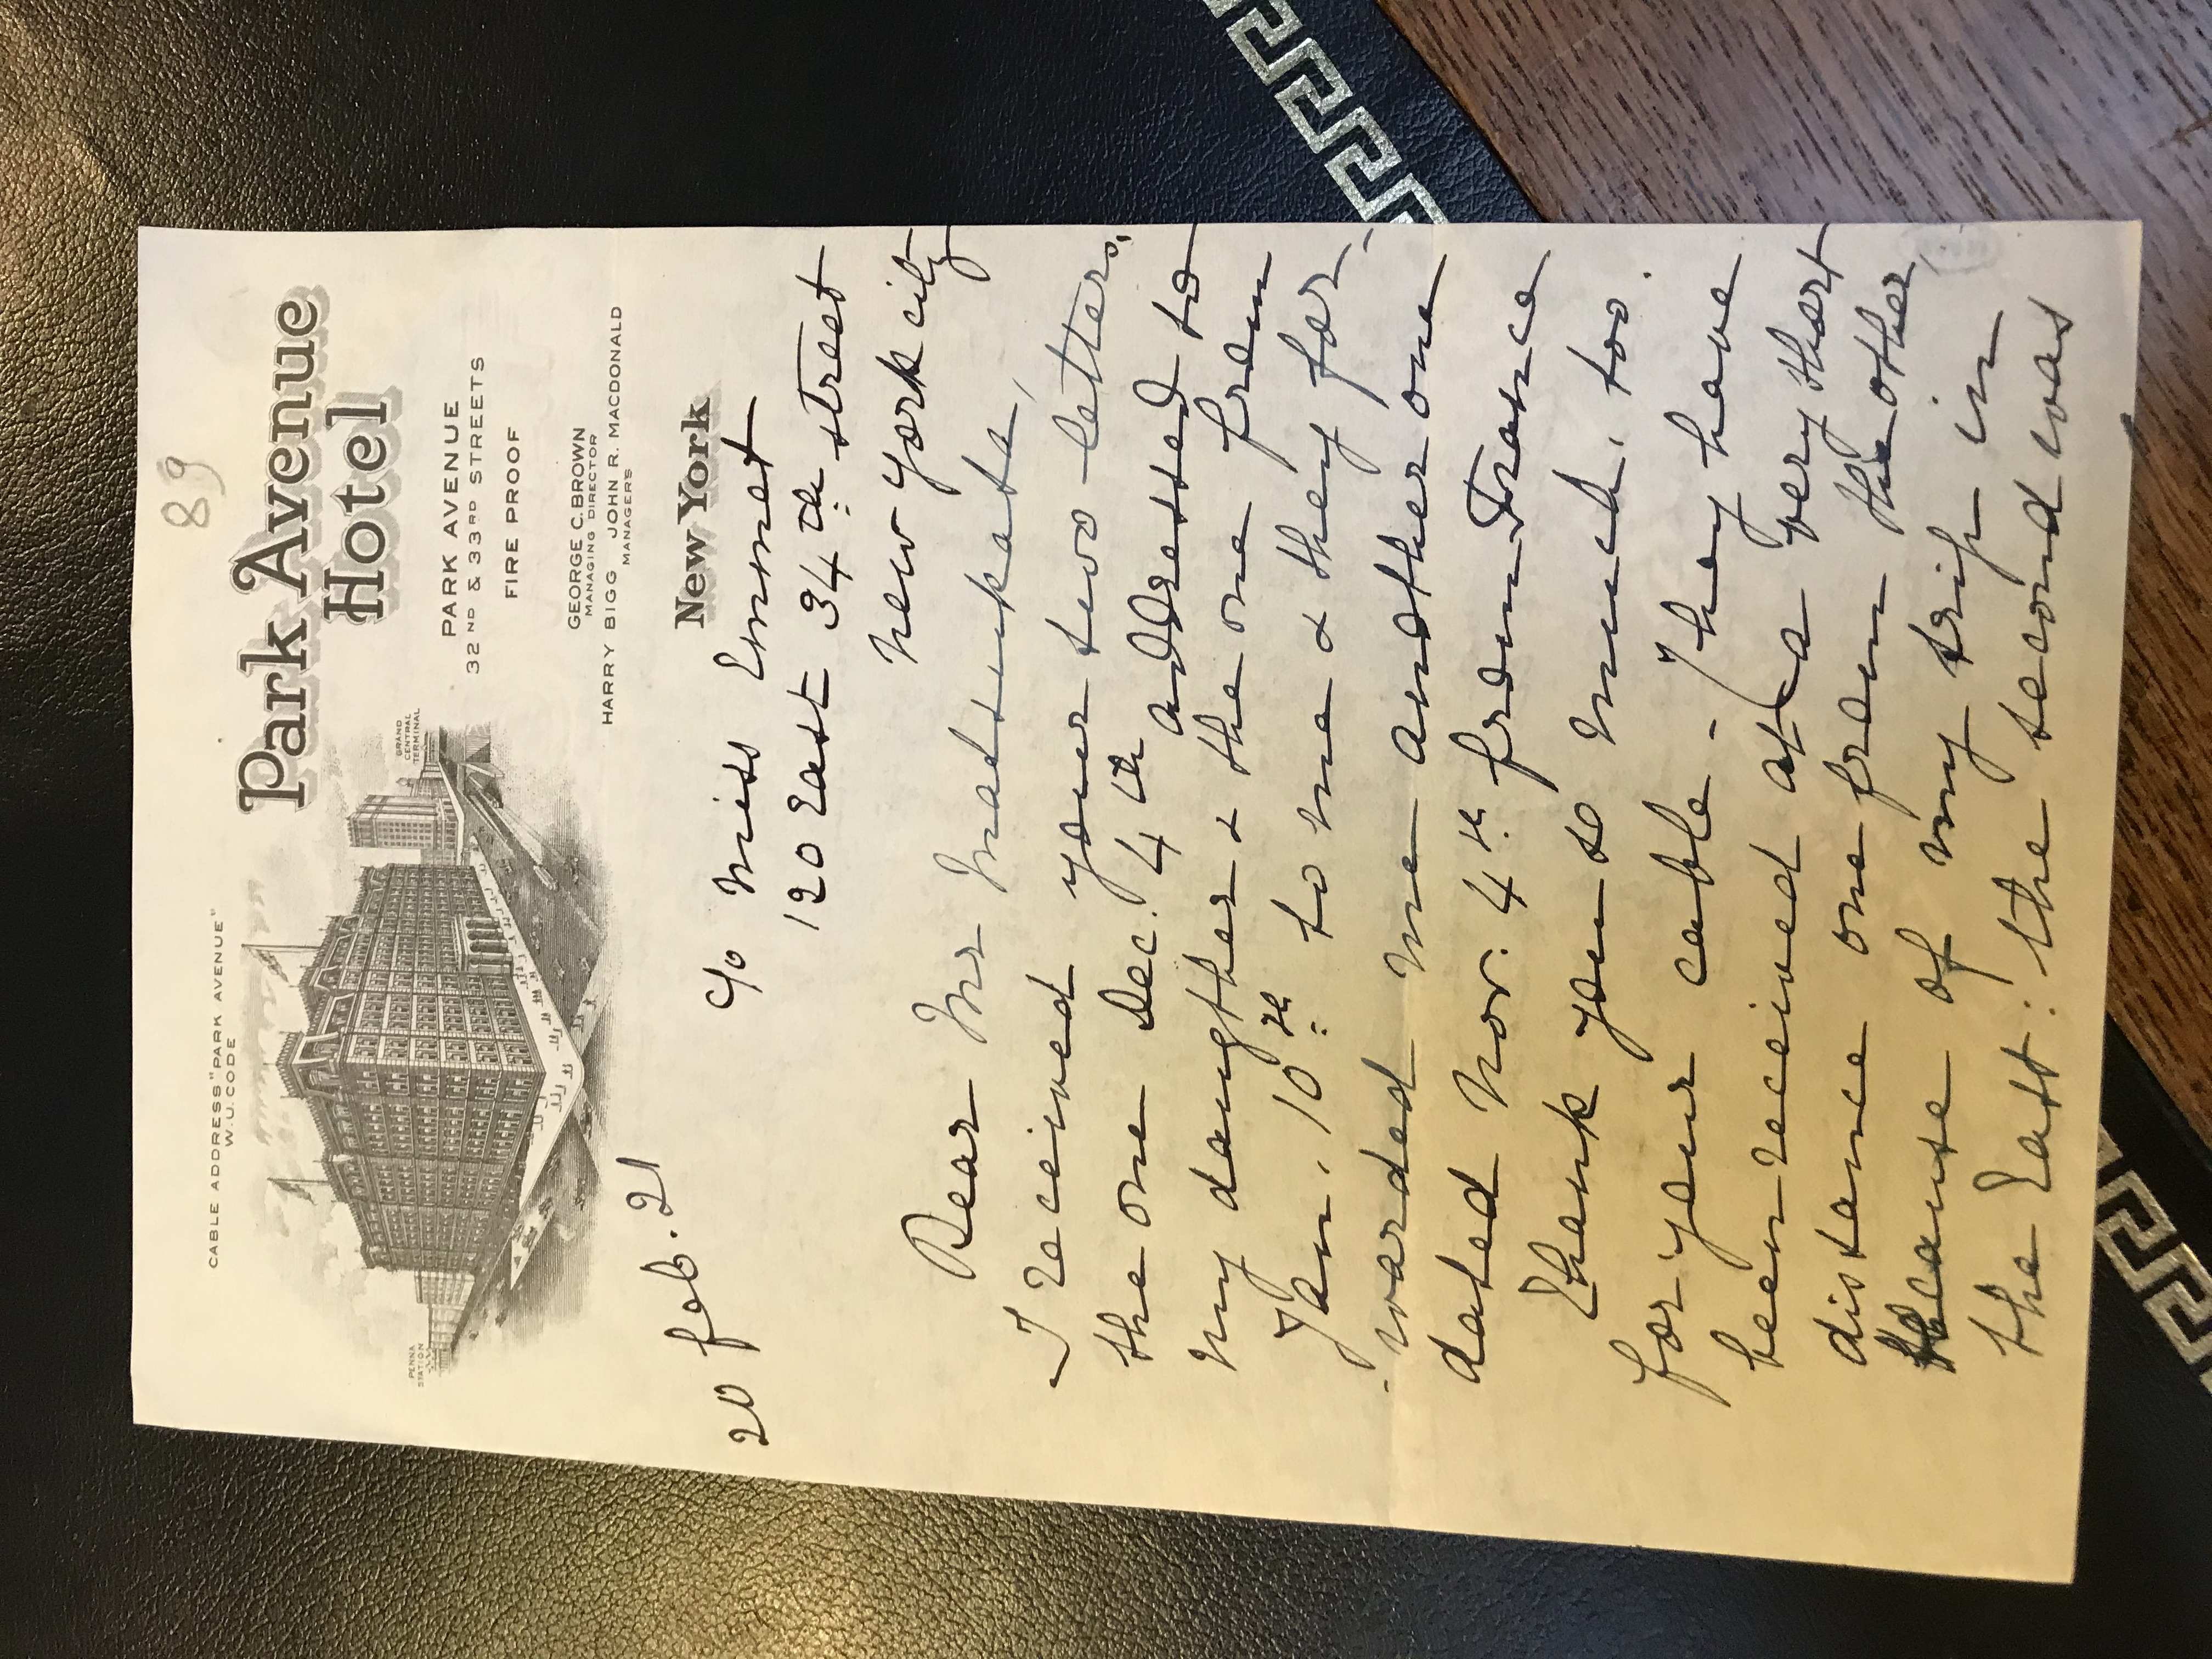 89
CABLE ADDRESS "PARK AVENUE"
W.U. CODE
Park Avenue
Hotel
PENNA
STATION
GRAND
CENTRAL
TERMINAL
PARK AVENUE
32ND & 33RD STREETS
FIRE PROOF
GEORGE C. BROWN
MANAGING DIRECTOR
HARRY BIGG JOHN R. MACDONALD
MANAGERS
New York
20 feb. 21
c/o Miss Emmet
120 East 34th street
New York city
Dear Mr Matsukata,
I received your two letters,
the one Dec. 4th addressed to
my daughter & the one from
Jan. 10th to me & they for-
-warded me another one
dated Nov. 4th from France
Thank you so much, too
for your cable - They have
been received at a very short
distance one from the other
because of my trip in
the East: the second was